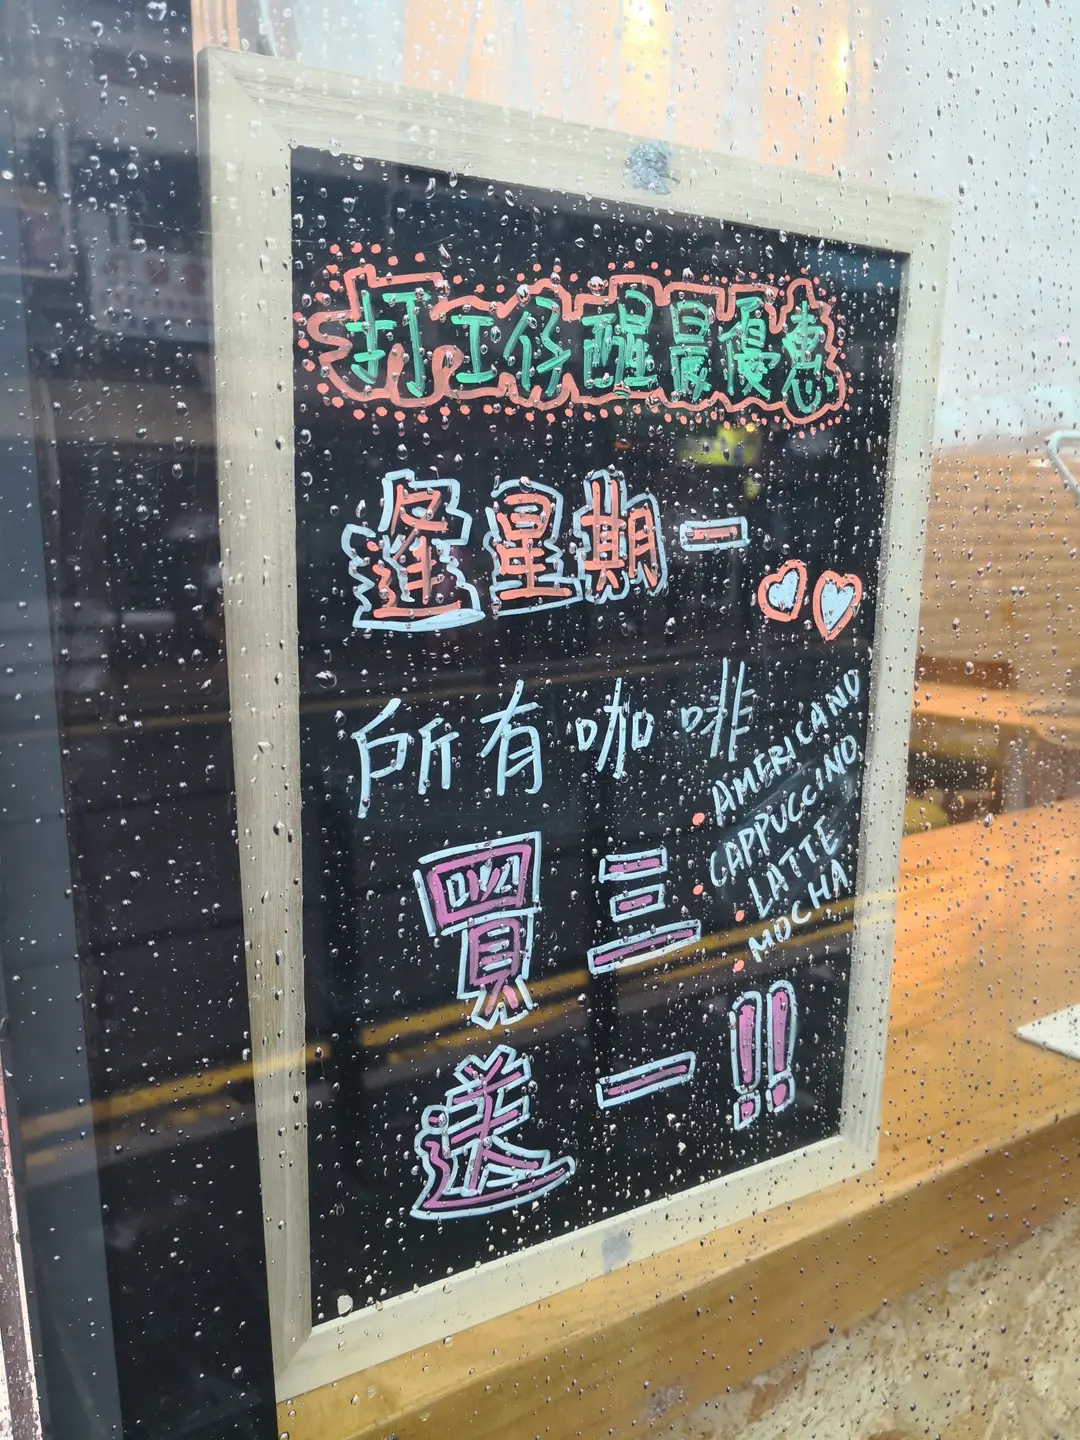 打工仔醒晨優惠
逢星期一
所有咖啡
AMERICANO
CAPPUCCINO
LATTE
MOCHA
買三
送一!!